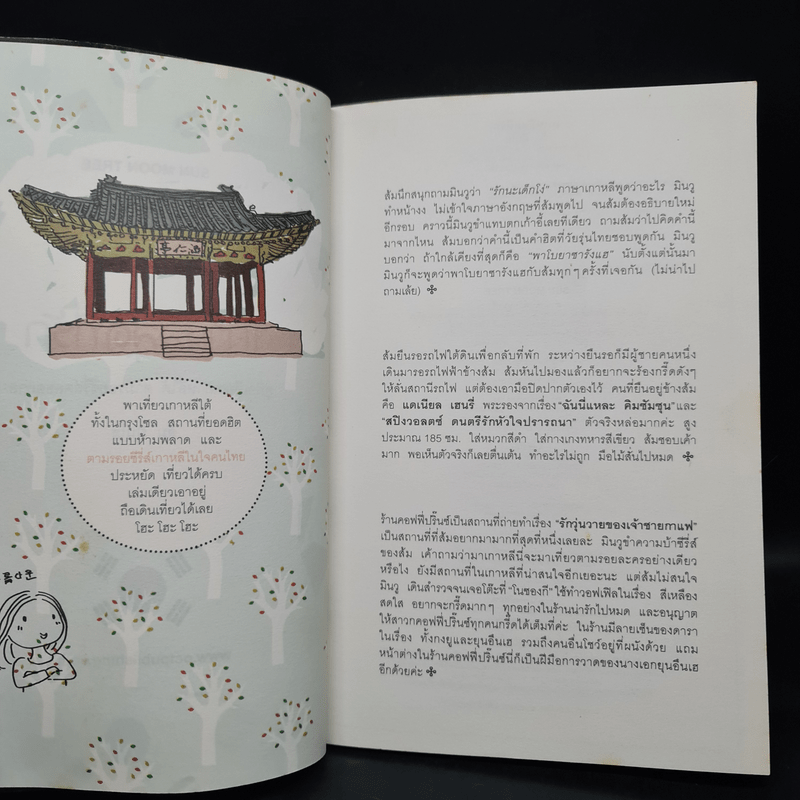 พาเที่ยวเกาหลีใต้
ทั้งในกรุงโซล สถานที่ยอดฮิต
แบบห้ามพลาด และ
ตามรอยซีรี่ส์เกาหลีในใจคนไทย
ประหยัด เที่ยวได้ครบ
เล่มเดียวเอาอยู่
ถือเดินเที่ยวได้เลย
โฮะ โฮะ โฮะ
ส้มนึกสนุกถามมินวูว่า "รักนะเด็กโง่" ภาษาเกาหลีพูดว่าอะไร มินวู
ทำหน้างง ไม่เข้าใจภาษาอังกฤษที่ส้มพูดไป จนส้มต้องอธิบายใหม่
อีกรอบ คราวนี้มินวูขำแทบตกเก้าอี้เลยทีเดียว ถามส้มว่าไปคิดคำนี้
มาจากไหน ส้มบอกว่าคำนี้เป็นคำฮิตที่วัยรุ่นไทยชอบพูดกัน มินวู
บอกว่า ถ้าใกล้เคียงที่สุดก็คือ "พาโบยาซารังแฮ" นับตั้งแต่นั้นมา
มินวูก็จะพูดว่าพาโบยาซารังแฮกับส้มทุกๆ ครั้งที่เจอกัน (ไม่น่าไป
ถามเล้ย)
ส้มยืนรอรถไฟใต้ดินเพื่อกลับที่พัก ระหว่างยืนรอก็มีผู้ชายคนหนึ่ง
เดินมารอรถไฟฟ้าข้างส้ม ส้มหันไปมองแล้วก็อยากจะร้องกรี๊ดดังๆ
ให้ลั่นสถานีรถไฟ แต่ต้องเอามือปิดปากตัวเองไว้ คนที่ยืนอยู่ข้างส้ม
คือ แดเนียล เฮนรี่ พระรองจากเรื่อง "ฉันนี่แหละ คิมซัมซุน" และ
"สปิงวอลตซ์ ดนตรีรักหัวใจปรารถนา" ตัวจริงหล่อมากค่ะ สูง
ประมาณ 185 ซม. ใส่หมวกสีดำ ใส่กางเกงทหารสีเขียว ส้มชอบเค้า
มาก พอเห็นตัวจริงก็เลยตื่นเต้น ทำอะไรไม่ถูก มือไม้สั่นไปหมด
ร้านคอฟฟี่ปริ๊นซ์เป็นสถานที่ถ่ายทำเรื่อง "รักวุ่นวายของเจ้าชายกาแฟ"
เป็นสถานที่ที่ส้มอยากมามากที่สุดที่หนึ่งเลยละ มินวูขำความบ้าซีรี่ส์
ของส้ม เค้าถามว่ามาเกาหลีนี่จะมาเที่ยวตามรอยละครอย่างเดียว
หรือไง ยังมีสถานที่ในเกาหลีที่น่าสนใจอีกเยอะนะ แต่ส้มไม่สนใจ
มินวู เดินสำรวจจนเจอโต๊ะที่ "โนซองกี" ใช้ทำวอฟเฟิลในเรื่อง สีเหลือง
สดใส อยากจะกรี๊ดมากๆ ทุกอย่างในร้านน่ารักไปหมด และอนุญาต
ให้สาวกคอฟฟี่ปริ๊นซ์ทุกคนกรี๊ดได้เต็มที่ค่ะ ในร้านมีลายเซ็นของดารา
ในเรื่อง ทั้งกงยูและยุนอึนเฮ รวมถึงคนอื่นโชว์อยู่ที่ผนังด้วย แถม
หน้าต่างในร้านคอฟฟี่ปริ๊นซ์นี่ก็เป็นฝีมือการวาดของนางเอกยุนอึนเฮ
อีกด้วยค่ะ